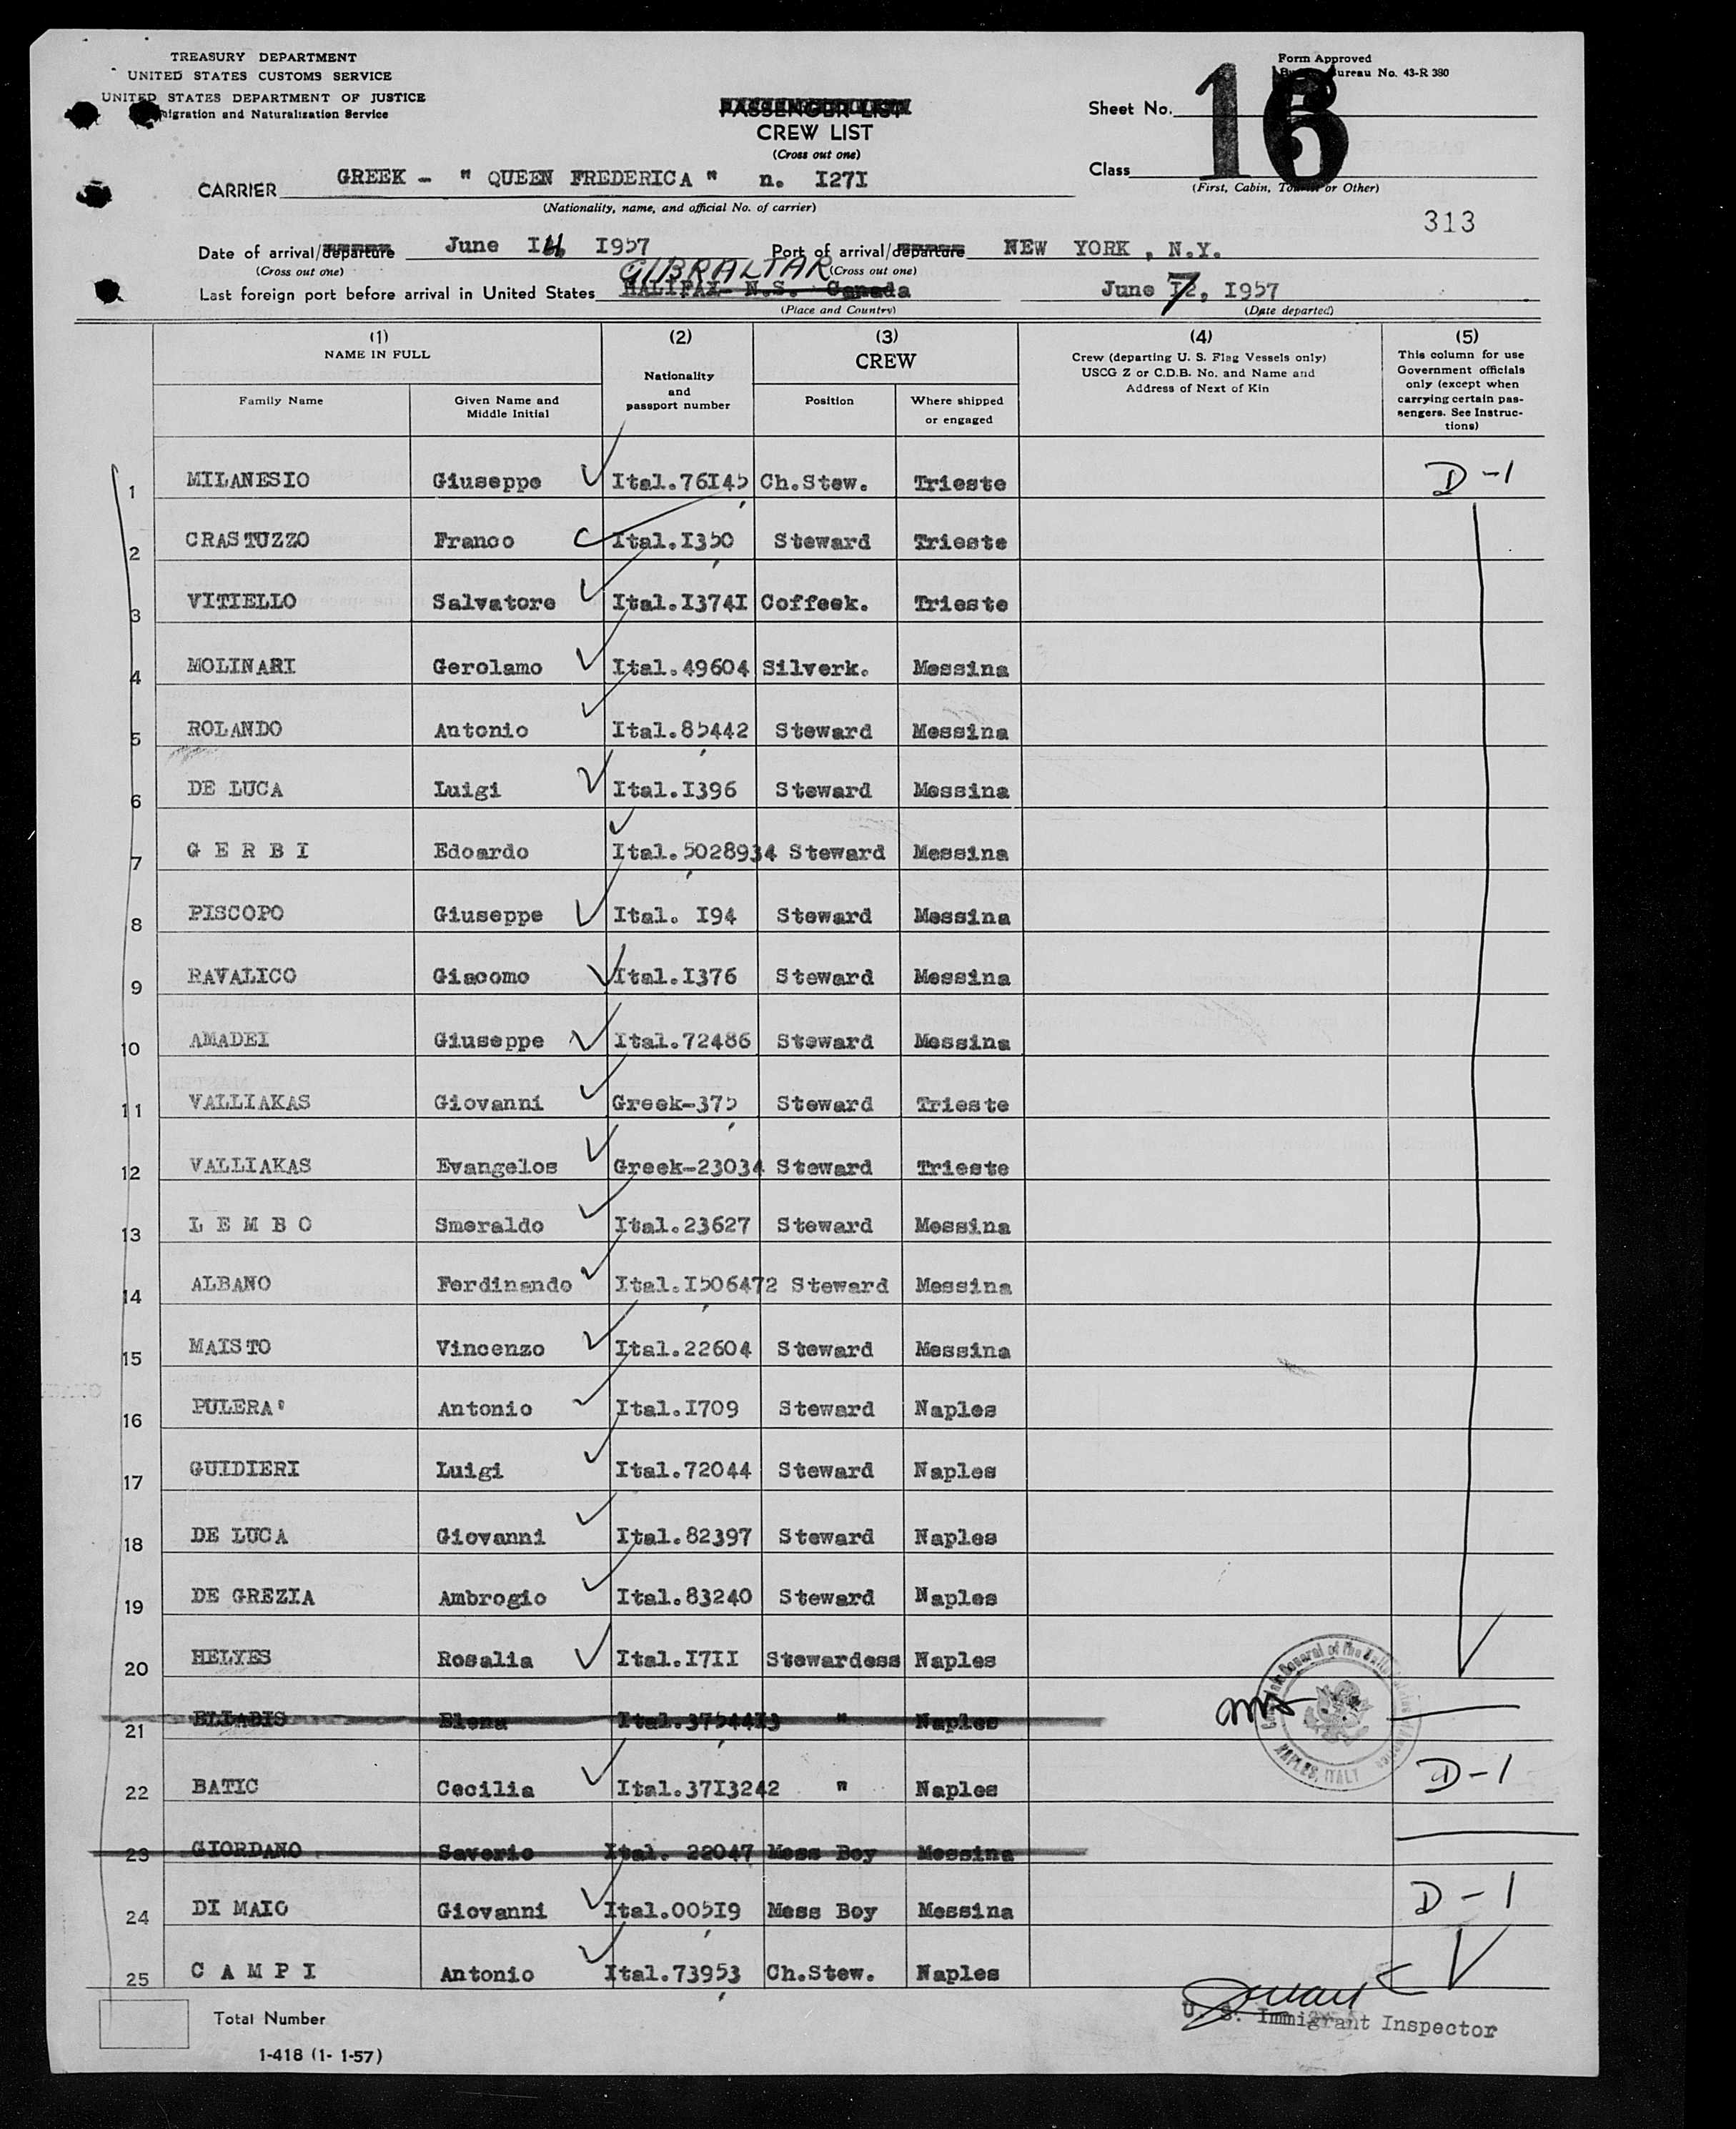 TREASURY DEPARTMENT
UNITED STATES CUSTOMS SERVICE
UNITED STATES DEPARTMENT OF JUSTICE
Immigration and Naturalization Service
PASSENGER LIST
CREW LIST
(Cross out one)
Form Approved
Bureau No. 43-R 380
Sheet No.
16
Class
(First, Cabin, Tourist or Other)
313
CARRIER GREEK - " QUEEN FREDERICA " n. I27I
(Nationality, name, and official No. of carrier)
Date of arrival/departure June I4, I957 Port of arrival/departure NEW YORK , N.Y.
(Cross out one) (Cross out one)
GIBRALTAR
Last foreign port before arrival in United States HALIFAX- N.S. Canada June 7, I957
(Place and Country) (Date departed)
(1) NAME IN FULL
Family Name
Given Name and Middle Initial
(2) Nationality and passport number
(3) CREW
Position
Where shipped or engaged
(4) Crew (departing U. S. Flag Vessels only) USCG Z or C.D.B. No. and Name and Address of Next of Kin
(5) This column for use Government officials only (except when carrying certain passengers. See Instructions)
1 MILANESIO Giuseppe Ital.76I45 Ch.Stew. Trieste D-1
2 CRASTUZZO Franco Ital.I350 Steward Trieste
3 VITIELLO Salvatore Ital.I374I Coffeek. Trieste
4 MOLINARI Gerolamo Ital.49604 Silverk. Messina
5 ROLANDO Antonio Ital.85442 Steward Messina
6 DE LUCA Luigi Ital.I396 Steward Messina
7 G E R B I Edoardo Ital.5028934 Steward Messina
8 PISCOPO Giuseppe Ital. I94 Steward Messina
9 RAVALICO Giacomo Ital.I376 Steward Messina
10 AMADEI Giuseppe Ital.72486 Steward Messina
11 VALLIAKAS Giovanni Greek-375 Steward Trieste
12 VALLIAKAS Evangelos Greek-23034 Steward Trieste
13 L E M B O Smeraldo Ital.23627 Steward Messina
14 ALBANO Ferdinando Ital.I506472 Steward Messina
15 MAISTO Vincenzo Ital.22604 Steward Messina
16 PULERA' Antonio Ital.I709 Steward Naples
17 GUIDIERI Luigi Ital.72044 Steward Naples
18 DE LUCA Giovanni Ital.82397 Steward Naples
19 DE GREZIA Ambrogio Ital.83240 Steward Naples
20 HELYES Rosalia Ital.I7II Stewardess Naples
21 ELIADIS Elena Ital.37544I3 " Naples
22 BATIC Cecilia Ital.37I3242 " Naples D-1
23 GIORDANO Saverio Ital. 22047 Mess Boy Messina
24 DI MAIO Giovanni Ital.005I9 Mess Boy Messina D-1
25 C A M P I Antonio Ital.73953 Ch.Stew. Naples
NAPLES, ITALY
Total Number
U. S. Immigrant Inspector
1-418 (1- 1-57)